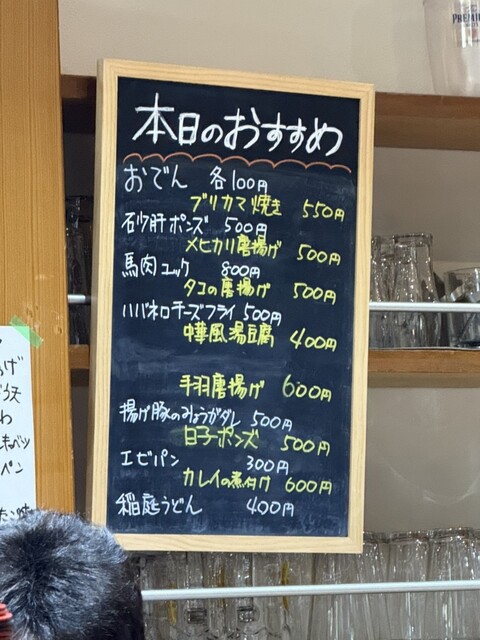 PREMIUM
本日のおすすめ
おでん 各100円
ブリカマ焼き 550円
砂肝ポンズ 500円
メヒカリ唐揚げ 500円
馬肉ユッケ 800円
タコの唐揚げ 500円
ハバネロチーズフライ 500円
中華風湯豆腐 400円
手羽唐揚げ 600円
揚げ豚のみょうがダレ 500円
白子ポンズ 500円
エビパン 300円
カレイの煮付け 600円
稲庭うどん 400円